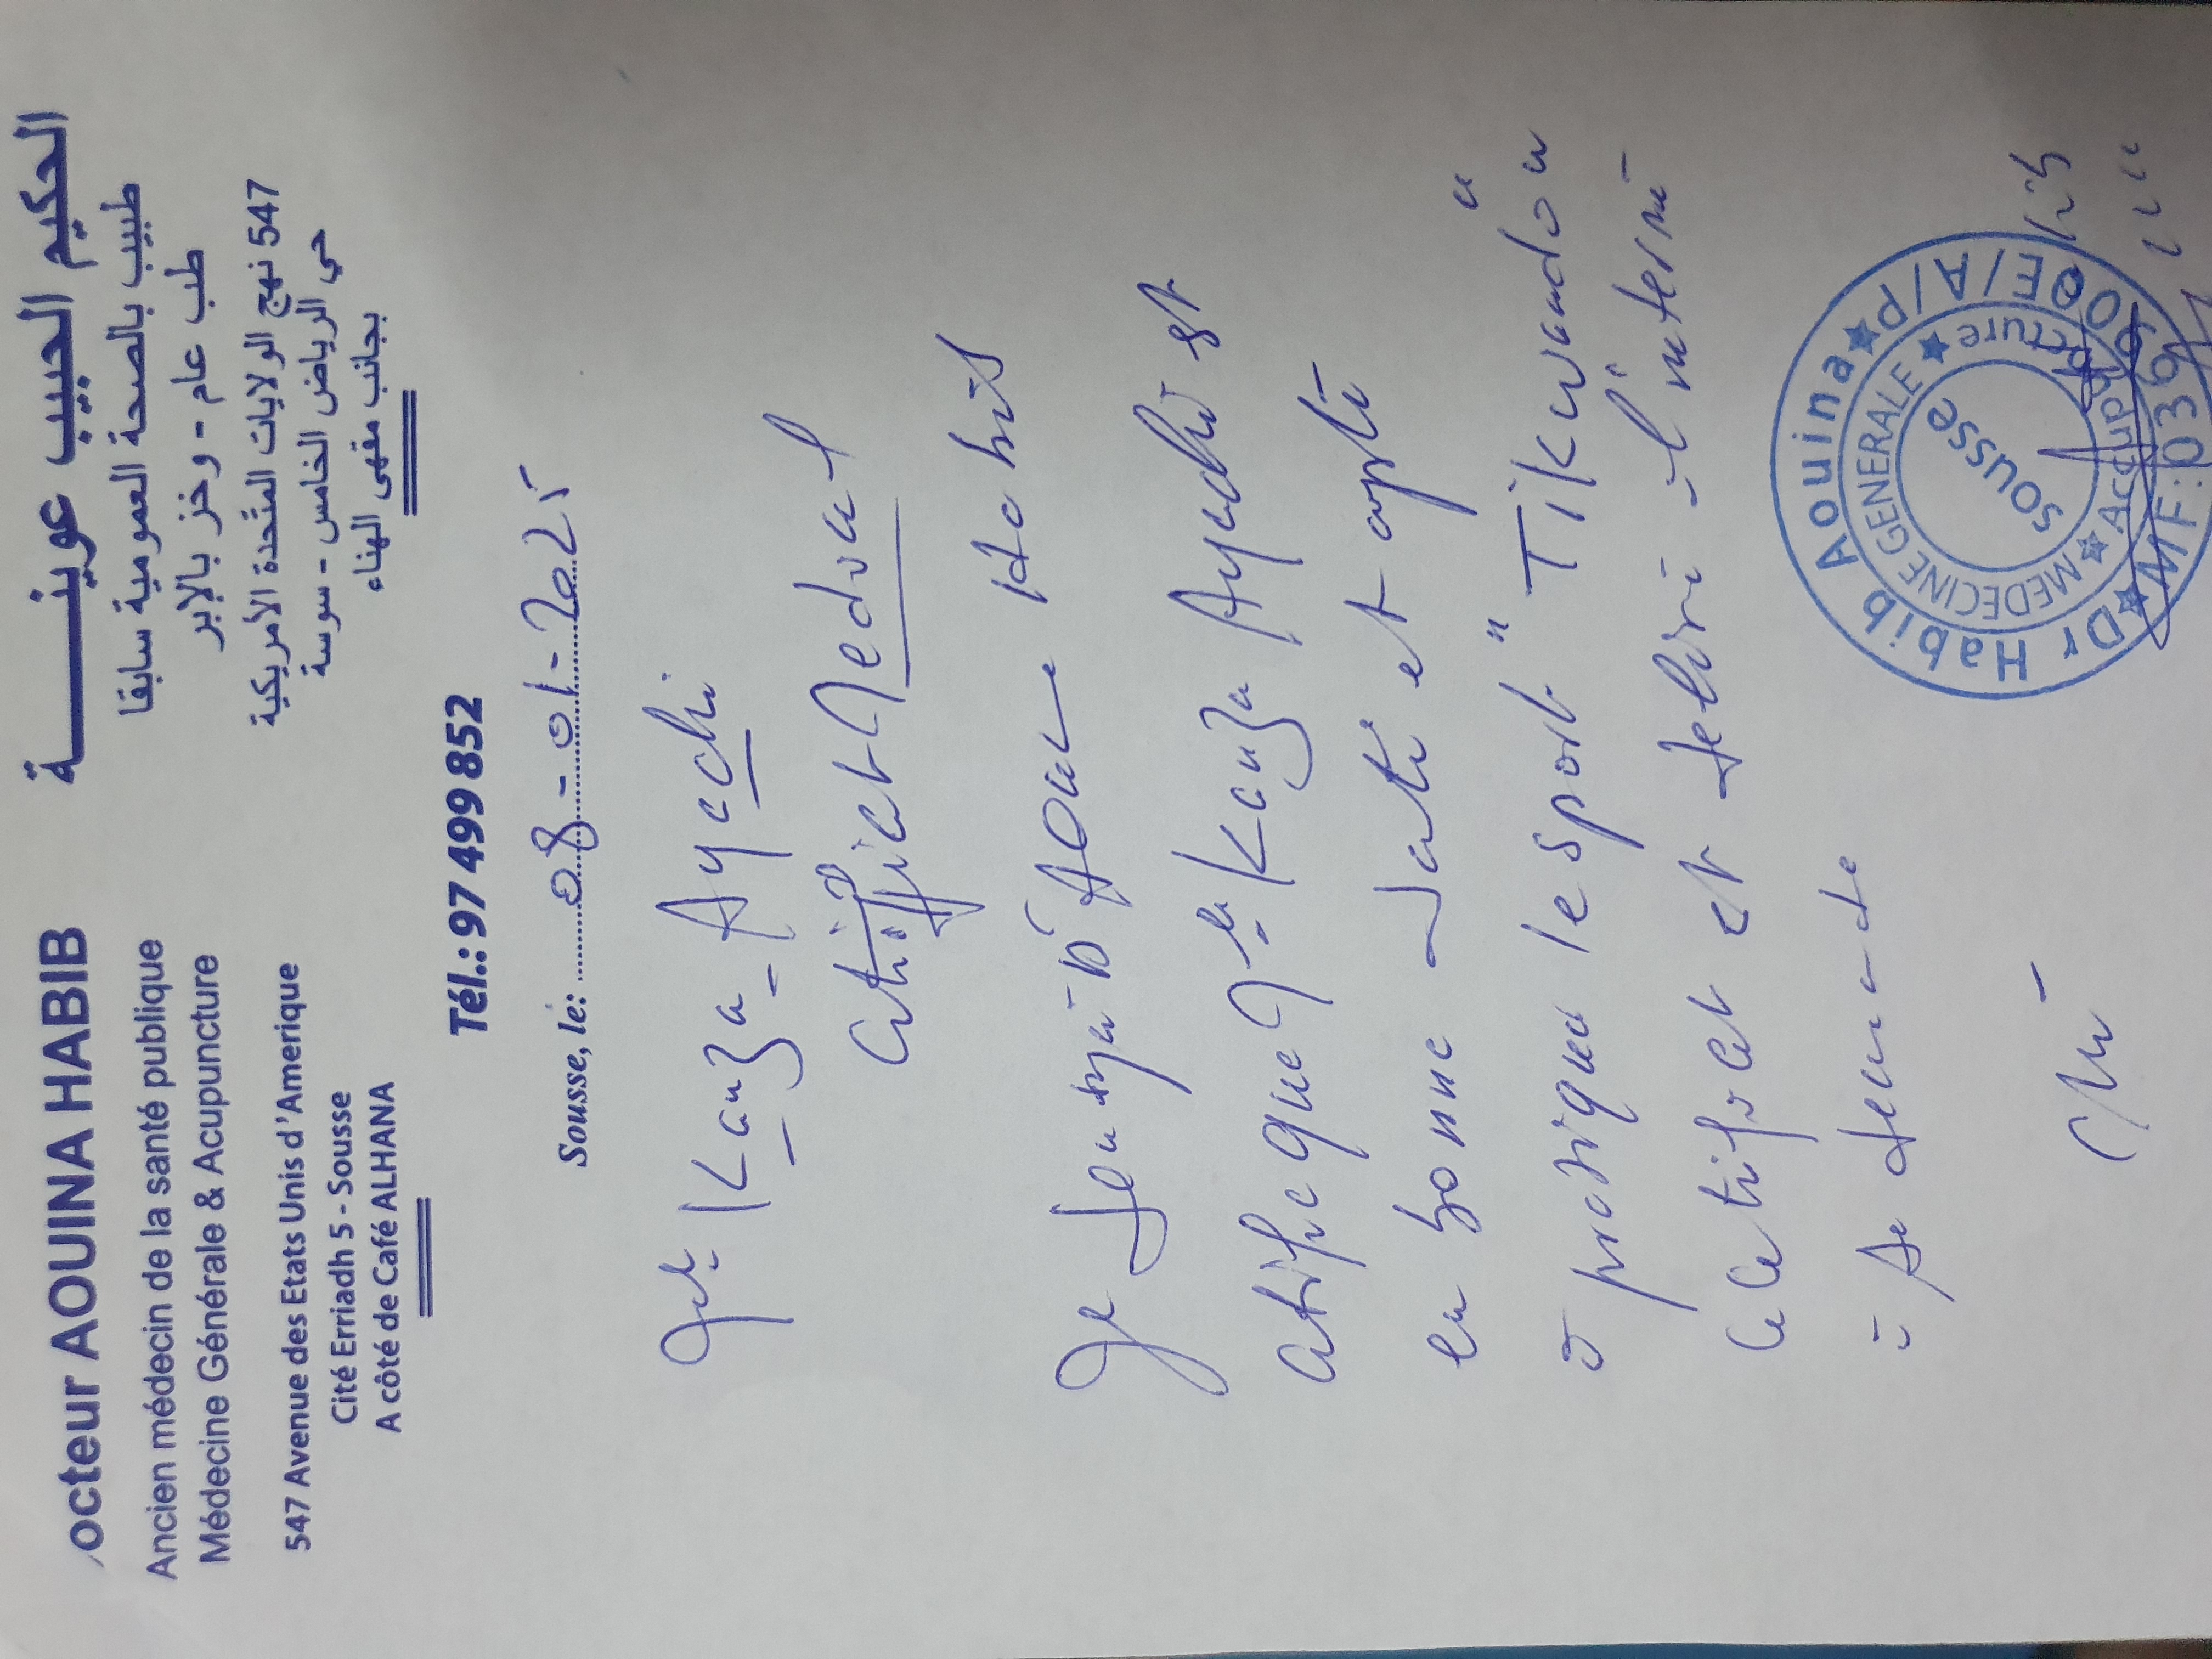 Docteur AOUINA HABIB
Ancien médecin de la santé publique
Médecine Générale & Acupuncture
547 Avenue des Etats Unis d'Amerique
Cité Erriadh 5 - Sousse
A côté de Café ALHANA
الحكيم الحبيب عوينـــــة
طبيب بالصحة العمومية سابقا
طب عام - وخز بالإبر
547 نهج الولايات المتحدة الأمريكية
حي الرياض الخامس - سوسة
بجانب مقهى الهناء
Tél.: 97 499 852
Sousse, le: 08-01-2025
Kanza Ayachi
Certificat Medical
Je Habib
certifie que Kanza Ayachi est
en bonne santé et apte
à pratiquer le sport "Tikwandou"
Ce certificat est délivré à l'interessé
à sa demande
Dr Habib Aouina ★ P/A/E/000
MEDECINE GENERALE ★ Acupuncture ★
Sousse